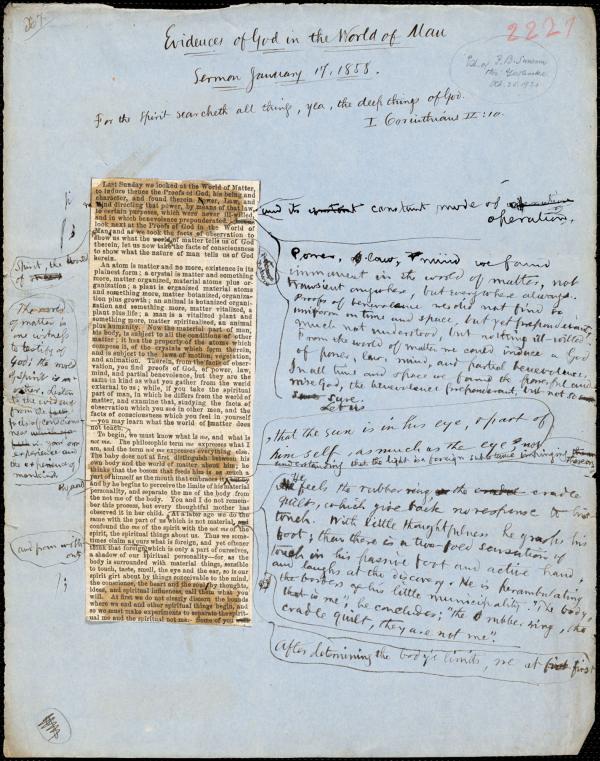 2227
Evidences of God in the World of Man
Sermon January 17, 1858.
For the Spirit searcheth all things, yea, the deep things of God.
I Corinthians II: 10.
Last Sunday we looked at the World of Matter,
to induce thence the Proofs of God, his being and
character, and found therein Power, Law, and
Mind directing that power, by means of that law,
to certain purposes, which were never ill-willed,
and in which benevolence preponderated.
look next at the Proofs of God in the World of
Man, and as we took the facts of observation to
show us what the world of matter tells us of God
therein, let us now take the facts of consciousness
to show what the nature of man tells us of God
herein.
An atom is matter and no more, existence in its
plainest form; a crystal is matter and something
more, matter organized, material atoms plus or-
ganization; a plant is organized material atoms
and something more, matter botanized, organiza-
tion plus growth; an animal is botanized organi-
zation and something more, matter vitalized, a
plant plus life; a man is a vitalized plant and
something more, matter spiritualized, an animal
plus humanity. Now the material part of man,
his body, is subject to all the conditions of other
matter; it has the property of the atoms which
compose it, of the crystals which form therein,
and is subject to the laws of motion, vegetation
and animation. Therein, from the facts of obser-
vation, you find proofs of God, of power, law,
mind, and partial benevolence, but they are the
same in kind as what you gather from the world
external to us; while, if you take the spiritual
part of man, in which he differs from the world of
matter, and examine that, studying the facts of
observation which you see in other men, and the
facts of consciousness which you feel in yourself
—you may learn what the world of matter does
not teach.
To begin, we must know what is me, and what is
not me. The philosophic term me expresses what I
am, and the term not me expresses everything else.
The baby does not at first distinguish between his
own body and the world of matter about him; he
thinks that the bosom that feeds him is as much a
part of himself as the mouth that embraces it
and by he begins to perceive the limits of his material
personality, and separate the me of the body from
the not me of the body. You and I do not remem-
ber this process, but every thoughtful mother has
observed it in her child. At a later age we do the
same with the part of us which is not material, and
confound the me of the spirit with the not me of the
spirit, the spiritual things about us. Thus we some-
times claim as ours what is foreign, and yet oftener
think that foreign which is only a part of ourselves,
a shadow of our spiritual personality—for as the
body is surrounded with material things, sensible
to touch, taste, smell, the eye and the ear, so is our
spirit girt about by things conceivable to the mind,
the conscience, the heart and the soul, by thoughts,
ideas, and spiritual influences, call them what you
will. At first we do not clearly discern the bounds
where we end and other spiritual things begin, and
so we must make experiments to separate the spirit-
ual me and the spiritual not me. Some of you
and its constant mode of
operation.
Power, law, mind we found
immanent in the world of matter, not
transient anywhere, but everywhere always.
Proofs of benevolence we did not find so
uniform in time and space, but yet preponderantly,
much not understood, but nothing ill-willed.
From the world of matter we could induce a God
of power, law, mind, and partial benevolence.
In all time and space we found the powerful and
wise God, the benevolence preponderant, but not so
sure.
Let us
that the sun is in his eye, & part of
him self, as much as the eye
understanding that the light is foreign substance impinging thereon
He
feels the rubber ring, the cradle
quilt, which give back no response to his
touch. With little thoughtfulness he grasps his
foot; then there is a two fold sensation
touch in his passive foot and active hand
and laughs at the discovery. He is perambulating
the borders of his little municipality. "The body,
that is me", he concludes; "the rubber ring, the
cradle quilt, they are not me".
After determining the body's limits, we at first
Spirit, the
The world
of matter is
one witness
to testify of
God; the world
of spirit is an-
other, listen
to the evidence
from the
facts of conscious-
ness
in your own
experience and
the experience of
mankind.
By and
and from with-
out